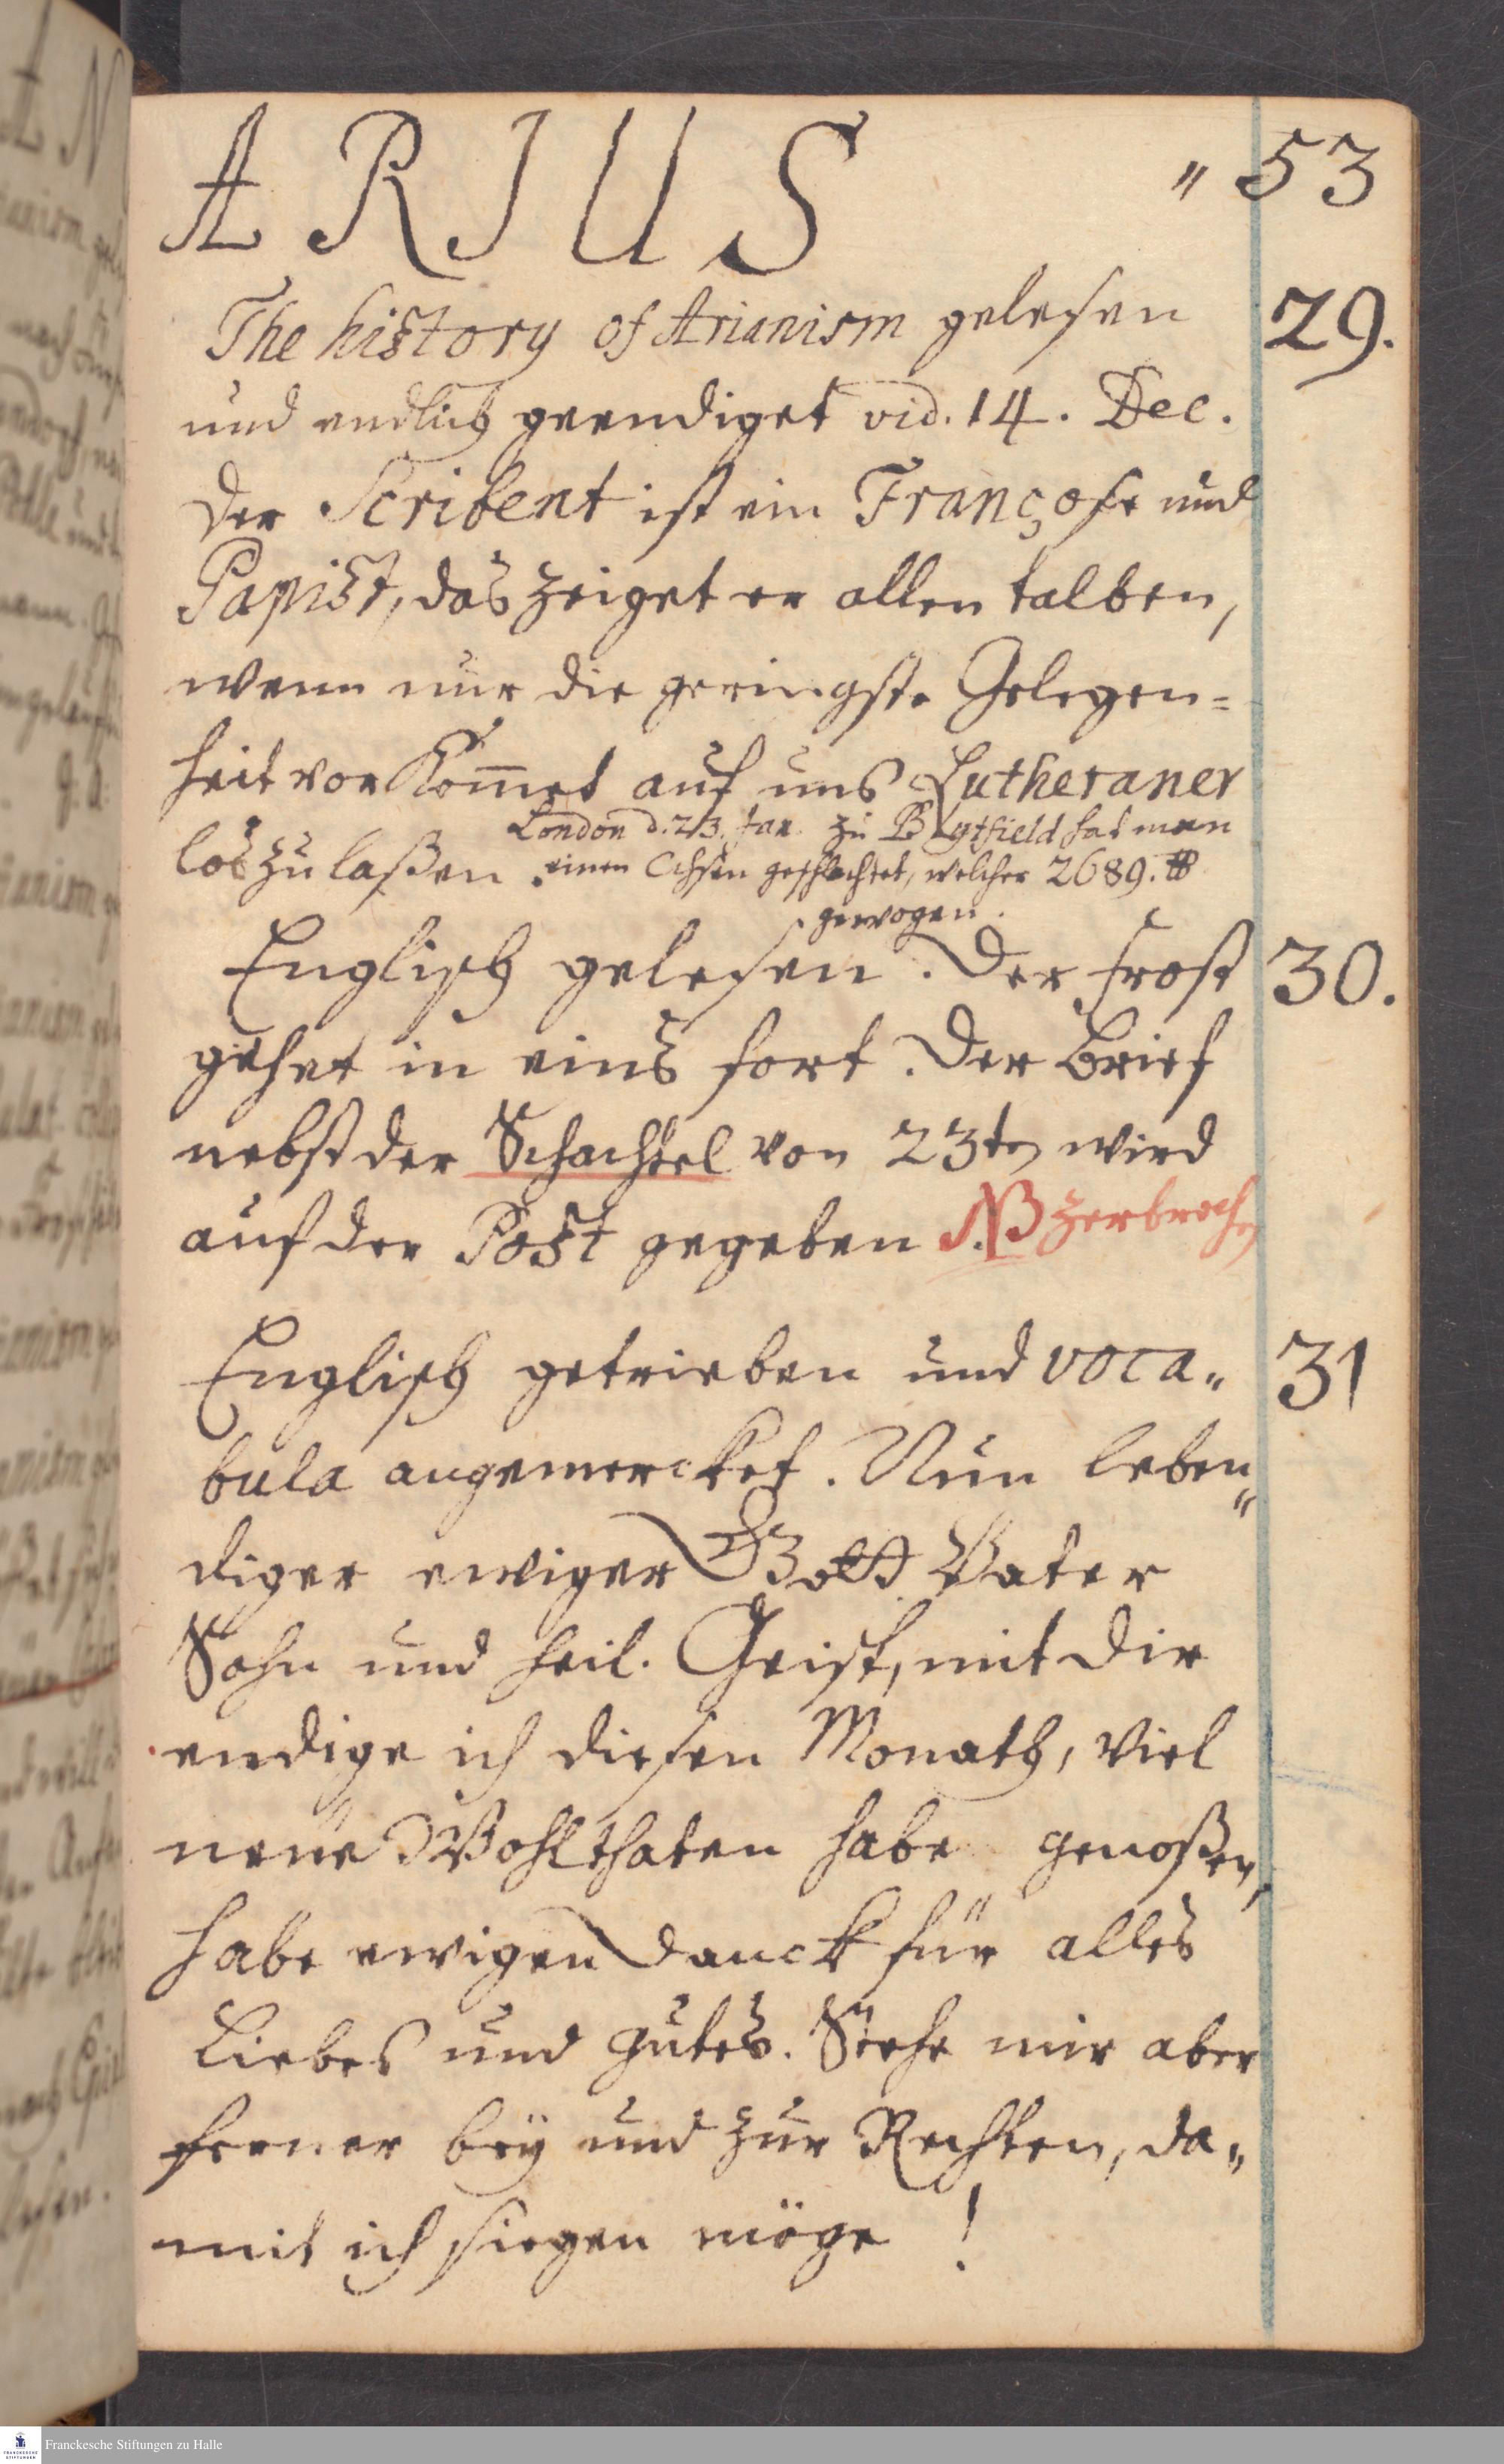 ARIUS " 53
The history of Arianism gelesen 29.
und endlich geendiget vid. 14. Dec.
Der Scribent ist ein Françose und
Papist, das zeiget er allen talben,
wenn nur die geringste Gelegen=
heit vor Kom̄et auf uns Lutheraner
London d. 23. Jan. zu B ytfield hat man
loszulaßen. einen Ochsen geschlachtet, welcher 2689. ℔
gewogen.
Englisch gelesen. Der Frost 30.
gehet in eins fort. Der Brief
nebst der Schachtel von 23ten wird
auf der Post gegeben NB zerbrochen
Englisch getrieben und voca„ 31
bula angemercket. Nun leben„
diger ewiger Gott Vater
Sohn und heil. Geist, mit dir
endige ich diesen Monath, viel
neue Wohlthaten habe genoßen,
habe ewigen Danck für alles
Liebes und gutes. Stehe mir aber
ferner beÿ und zur Rechten, da„
mit ich siegen möge !
Franckesche Stiftungen zu Halle